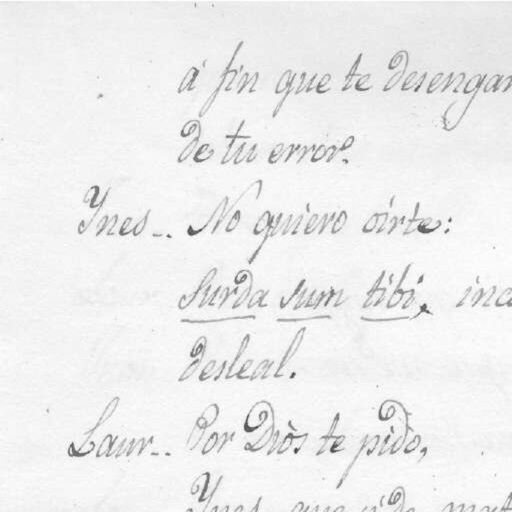 á fin que te desengañ
de tu error.
Ynes-. No quiero oirte:
Surda sum tibi,
desleal.
Laur-. Por Diòs te pido,
Ynes, que